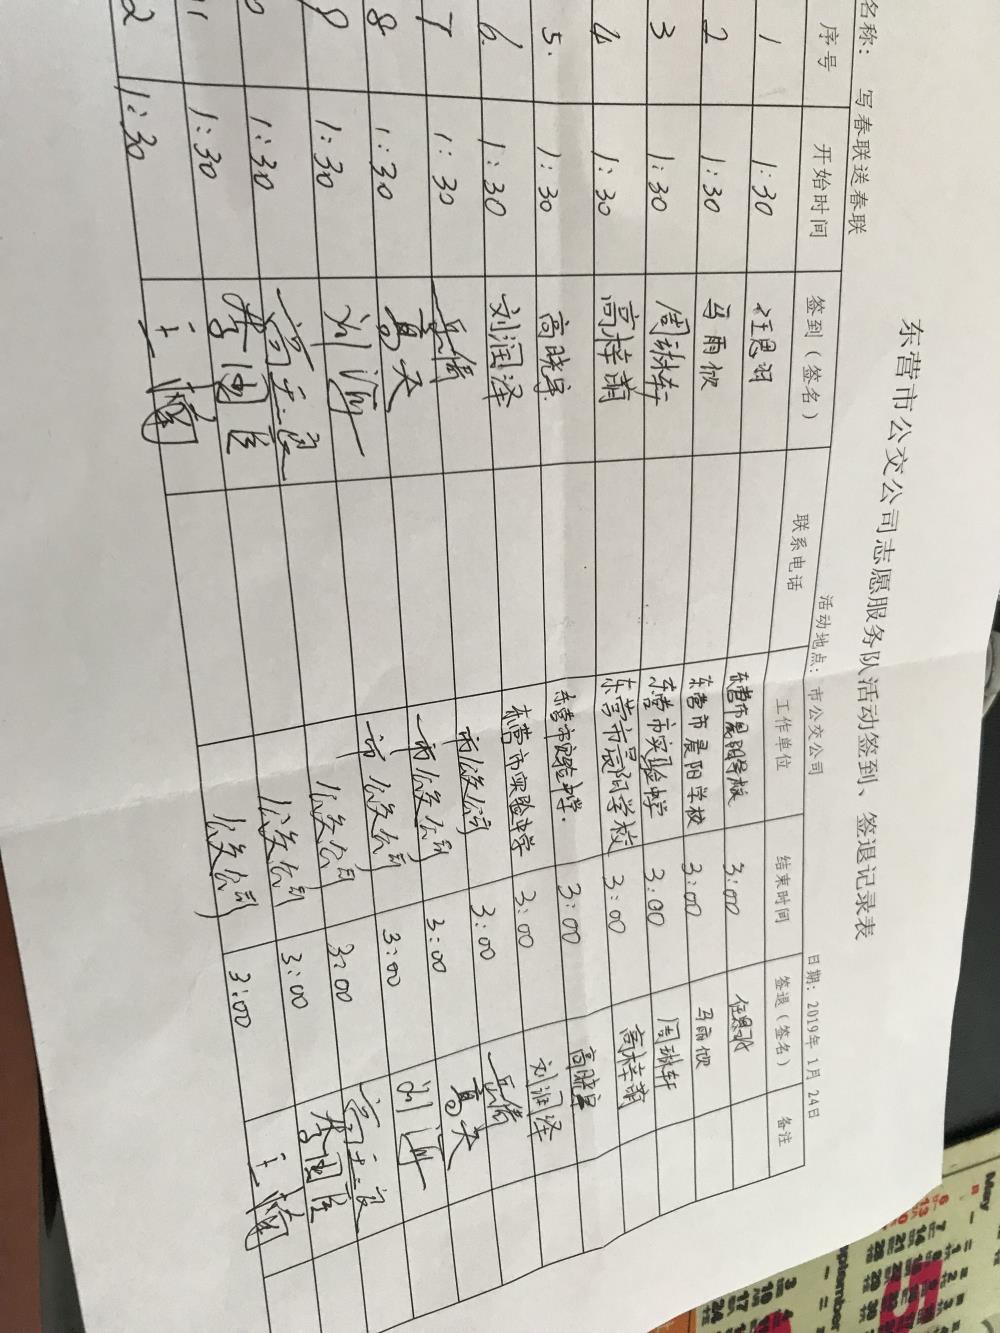 东营市公交公司志愿服务队活动签到、签退记录表
名称: 写春联送春联 活动地点: 市公交公司 日期: 2019年 1月 24日
序号 开始时间 签到(签名) 联系电话 工作单位 结束时间 签退(签名) 备注
1 1:30 任思羽 东营市晨阳学校 3:00 任思羽
2 1:30 马雨欣 东营市晨阳学校 3:00 马雨欣
3 1:30 周琳轩 东营市实验中学 3:00 周琳轩
4 1:30 高梓萌 东营市晨阳学校 3:00 高梓萌
5. 1:30 高晓 东营市实验中学. 3:00 高晓
6. 1:30 刘润泽 东营市实验中学 3:00 刘润泽
7 1:30 岳 市公交公司 3:00 岳
8 1:30 天 市公交公司 3:00 天
9 1:30 刘 市公交公司 3:00 刘
1:30 公交公司 3:00
11 1:30 李国 公交公司 3:00 李国
2 1:30 王 公交公司 3:00 王
May
September